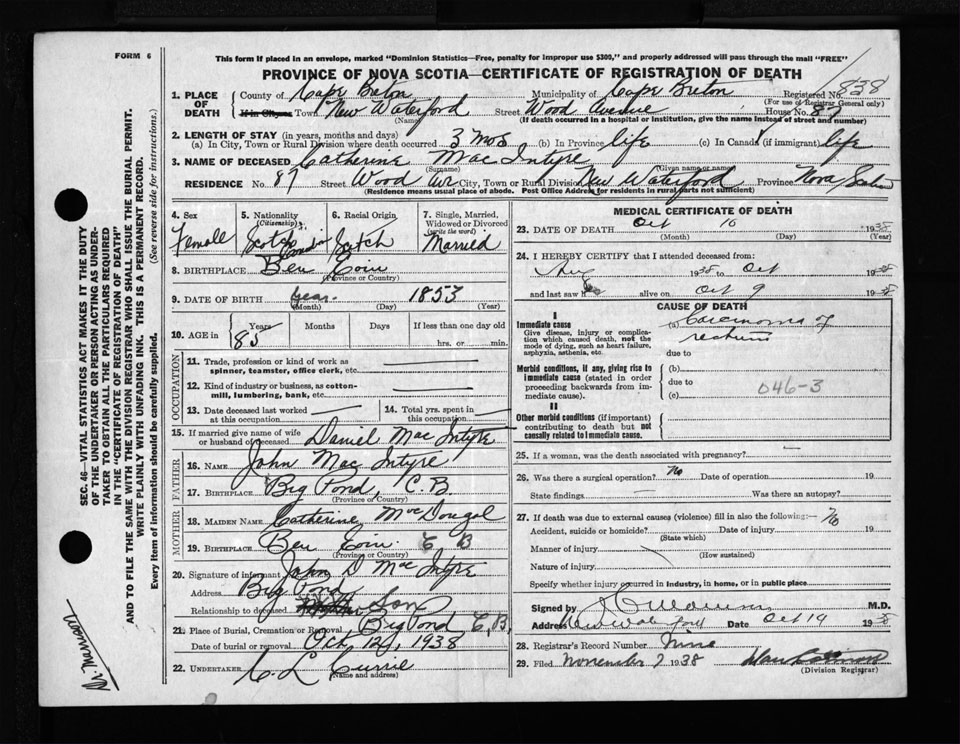 FORM 6
This form if placed in an envelope, marked "Dominion Statistics—Free, penalty for improper use $300," and properly addressed will pass through the mail "FREE"
PROVINCE OF NOVA SCOTIA—CERTIFICATE OF REGISTRATION OF DEATH
1. PLACE OF DEATH County of Cape Breton Municipality of Cape Breton Registered No. 838
(For use of Registrar General only)
Town New Waterford Street Wood Avenue House No. 87
(Name) (If death occurred in a hospital or institution, give the name instead of street and number)
2. LENGTH OF STAY (in years, months and days)
(a) In City, Town or Rural Division where death occurred 3 mos (b) In Province life (c) In Canada (if immigrant) life
3. NAME OF DECEASED Catherine Mac Intyre
(Surname) (Given name or names)
RESIDENCE No. 87 Street Wood Ave City, Town or Rural Division New Waterford Province Nova Scotia
(Residence means usual place of abode. Post Office Address for residents in rural parts not sufficient)
4. Sex Female
5. Nationality (Citizenship) Scotch
6. Racial Origin Scotch
7. Single, Married, Widowed or Divorced (write the word) Married
8. BIRTHPLACE Ben Eoin
(Province or Country)
9. DATE OF BIRTH year 1853
(Month) (Day) (Year)
10. AGE in Years 85 Months Days If less than one day old hrs. or min.
OCCUPATION
11. Trade, profession or kind of work as spinner, teamster, office clerk, etc.
12. Kind of industry or business, as cotton-mill, lumbering, bank, etc.
13. Date deceased last worked at this occupation
14. Total yrs. spent in this occupation
15. If married give name of wife or husband of deceased Daniel Mac Intyre
FATHER
16. NAME John Mac Intyre
17. BIRTHPLACE Big Pond, C.B.
(Province or Country)
MOTHER
18. MAIDEN NAME Catherine MacDougel
19. BIRTHPLACE Ben Eoin C B
(Province or Country)
20. Signature of informant John D Mac Intyre
Address Big Pond
Relationship to deceased Son
21. Place of Burial, Cremation or Removal Big Pond C,B,
Date of burial or removal Oct, 12, 1938
22. UNDERTAKER C. L Currie
(Name and address)
MEDICAL CERTIFICATE OF DEATH
23. DATE OF DEATH Oct 10 1938
(Month) (Day) (Year)
24. I HEREBY CERTIFY that I attended deceased from:
1938 to Oct 1938
and last saw h alive on Oct 9 1938
CAUSE OF DEATH
I
Immediate cause
Give disease, injury or complication which caused death, not the mode of dying, such as heart failure, asphyxia, asthenia, etc.
(a) Carcinoma of rectum
due to
Morbid conditions, if any, giving rise to immediate cause (stated in order proceeding backwards from immediate cause).
(b)
due to
(c) 046-3
II
Other morbid conditions (if important) contributing to death but not causally related to immediate cause.
25. If a woman, was the death associated with pregnancy?
26. Was there a surgical operation? No Date of operation 19
State findings Was there an autopsy?
27. If death was due to external causes (violence) fill in also the following:— No
Accident, suicide or homicide? Date of injury 19
(State which)
Manner of injury
(How sustained)
Nature of injury
Specify whether injury occurred in industry, in home, or in public place
Signed by M.D.
Address New Waterford Date Oct 19 1938
28. Registrar's Record Number Nine
29. Filed November 7 1938
(Division Registrar)
SEC. 46—VITAL STATISTICS ACT MAKES IT THE DUTY
OF THE UNDERTAKER OR PERSON ACTING AS UNDERTAKER TO OBTAIN ALL THE PARTICULARS REQUIRED
IN THE "CERTIFICATE OF REGISTRATION OF DEATH"
AND TO FILE THE SAME WITH THE DIVISION REGISTRAR WHO SHALL ISSUE THE BURIAL PERMIT.
WRITE PLAINLY WITH UNFADING INK. THIS IS A PERMANENT RECORD.
Every item of information should be carefully supplied. (See reverse side for instructions.)